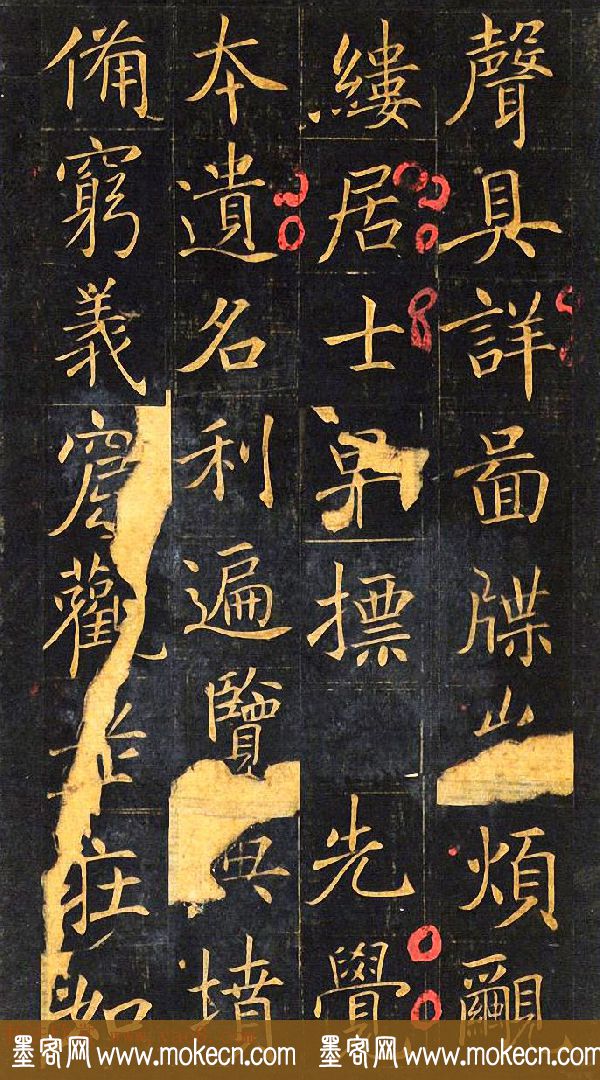 聲具詳啚牒煩覼
縷居士標先覺
本遺名利遍覽典墳
備窮義窟觀庄如
墨客网 www.mokecn.com 墨客网 www.mokecn.com